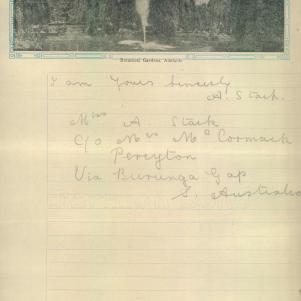 Botanical Gardens, Adelaide
I am Yours sincerely
A. Stack.
Miss A Stack
C/o Mrs McCormack
Percyton
Via Burunga Gap
S. Australia